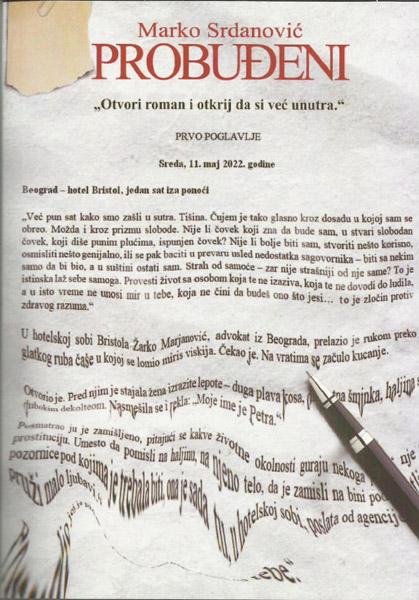 Marko Srdanović
PROBUĐENI
„Otvori roman i otkrij da si već unutra.“
PRVO POGLAVLJE
Sreda, 11. maj 2022. godine
Beograd – hotel Bristol, jedan sat iza ponoći
„Već pun sat kako smo zašli u sutra. Tišina. Čujem je tako glasno kroz dosadu u kojoj sam se
obreo. Možda i kroz prizmu slobode. Nije li čovek koji zna da bude sam, u stvari slobodan
čovek, koji diše punim plućima, ispunjen čovek? Nije li bolje biti sam, stvoriti nešto korisno,
osmisliti nešto genijalno, ili se pak baciti u prevaru usled nedostatka sagovornika – biti sa nekim
samo da bi bio, a u suštini ostati sam. Strah od samoće – zar nije strašniji od nje same? To je
istinska laž sebe samoga. Provesti život sa osobom koja te ne izaziva, koja te ne dovodi do ludila,
a u isto vreme ne unosi mir u tebe, koja ne čini da budeš ono što jesi... to je zločin protiv
zdravog razuma.“
U hotelskoj sobi Bristola Žarko Marjanović, advokat iz Beograda, prelazio je rukom preko
glatkog ruba čaše u kojoj se lomio miris viskija. Čekao je. Na vratima se začulo kucanje.
Otvorio je. Pred njim je stajala žena izrazite lepote – duga plava kosa, šminka, haljina s
dubokim dekolteom. Nasmešila se i rekla: „Moje ime je Petra.“
Posmatrao ju je zamišljeno, pitajući se kakve životne okolnosti guraju nekoga nje
prostituciju. Umesto da pomisli na haljinu, na njeno telo, da je zamisli na bini pod
pozornice pod kojima je trebala biti, ona je sada tu, u hotelskoj sobi, poslata od agencije
pruži malo ljubavi
sebe.“